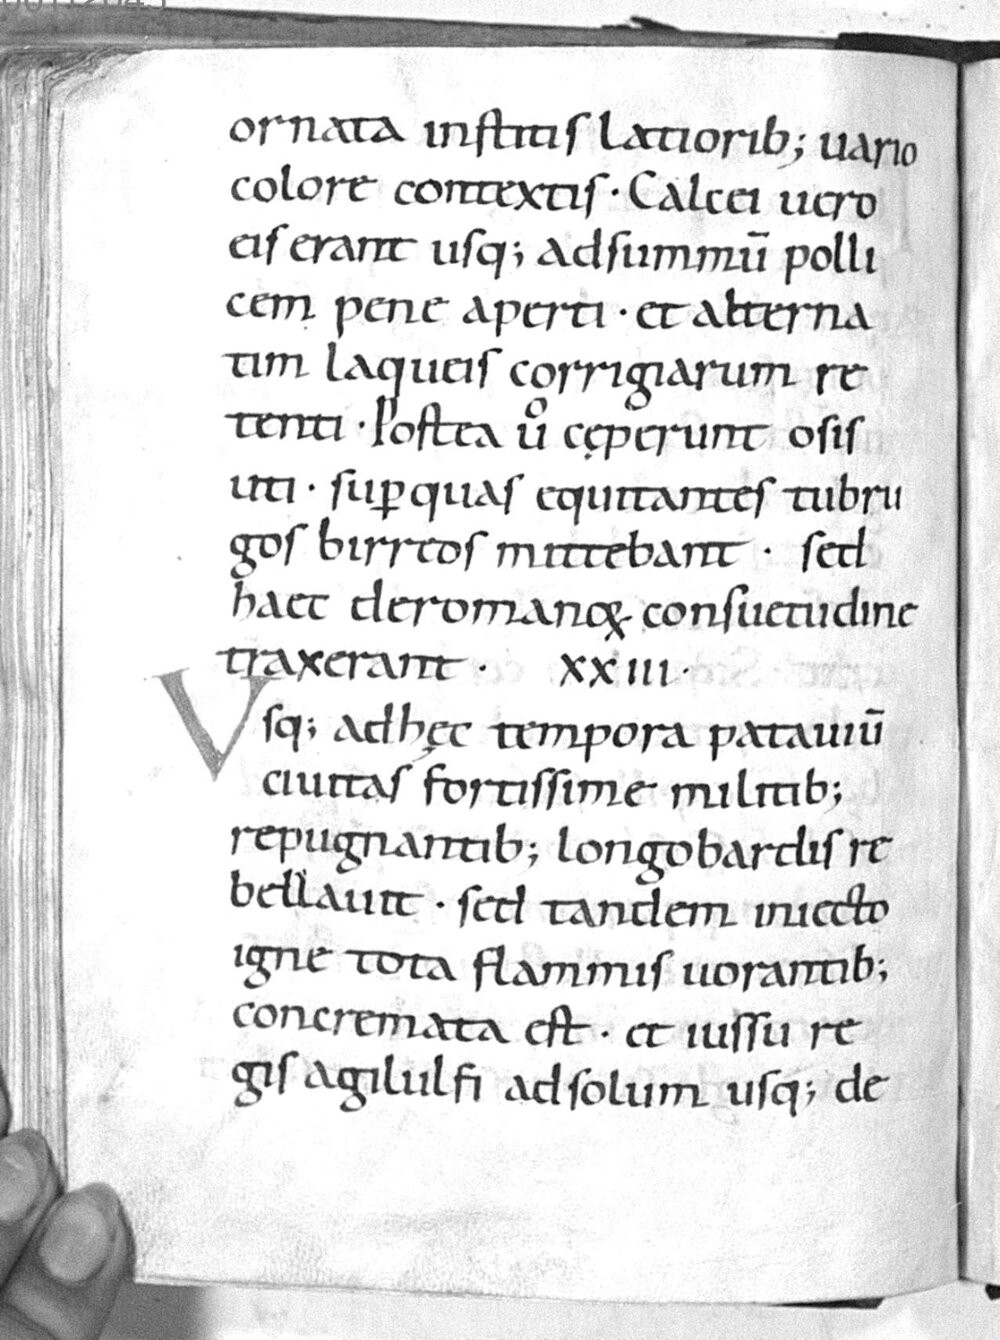 ornata institis latiorib; uario
colore contextis · Calcei uero
eis erant usq; ad summū polli
cem pene aperti · et alterna
tim laqueis corrigiarum re
tenti · Postea uͦ cęperunt osis
uti · sup̱ quas equitantes tubru
gos birreos mittebant · sed
haec de romanoꝝ consuetudine
traxerant · XXIII ·
Vsq; ad hęc tempora patauiū
ciuitas fortissime militib;
repugnantib; longobardis re
bellauit · sed tandem iniecto
igne tota flammis uorantib;
concremata est · et iussu re
gis agilulfi ad solum usq; de